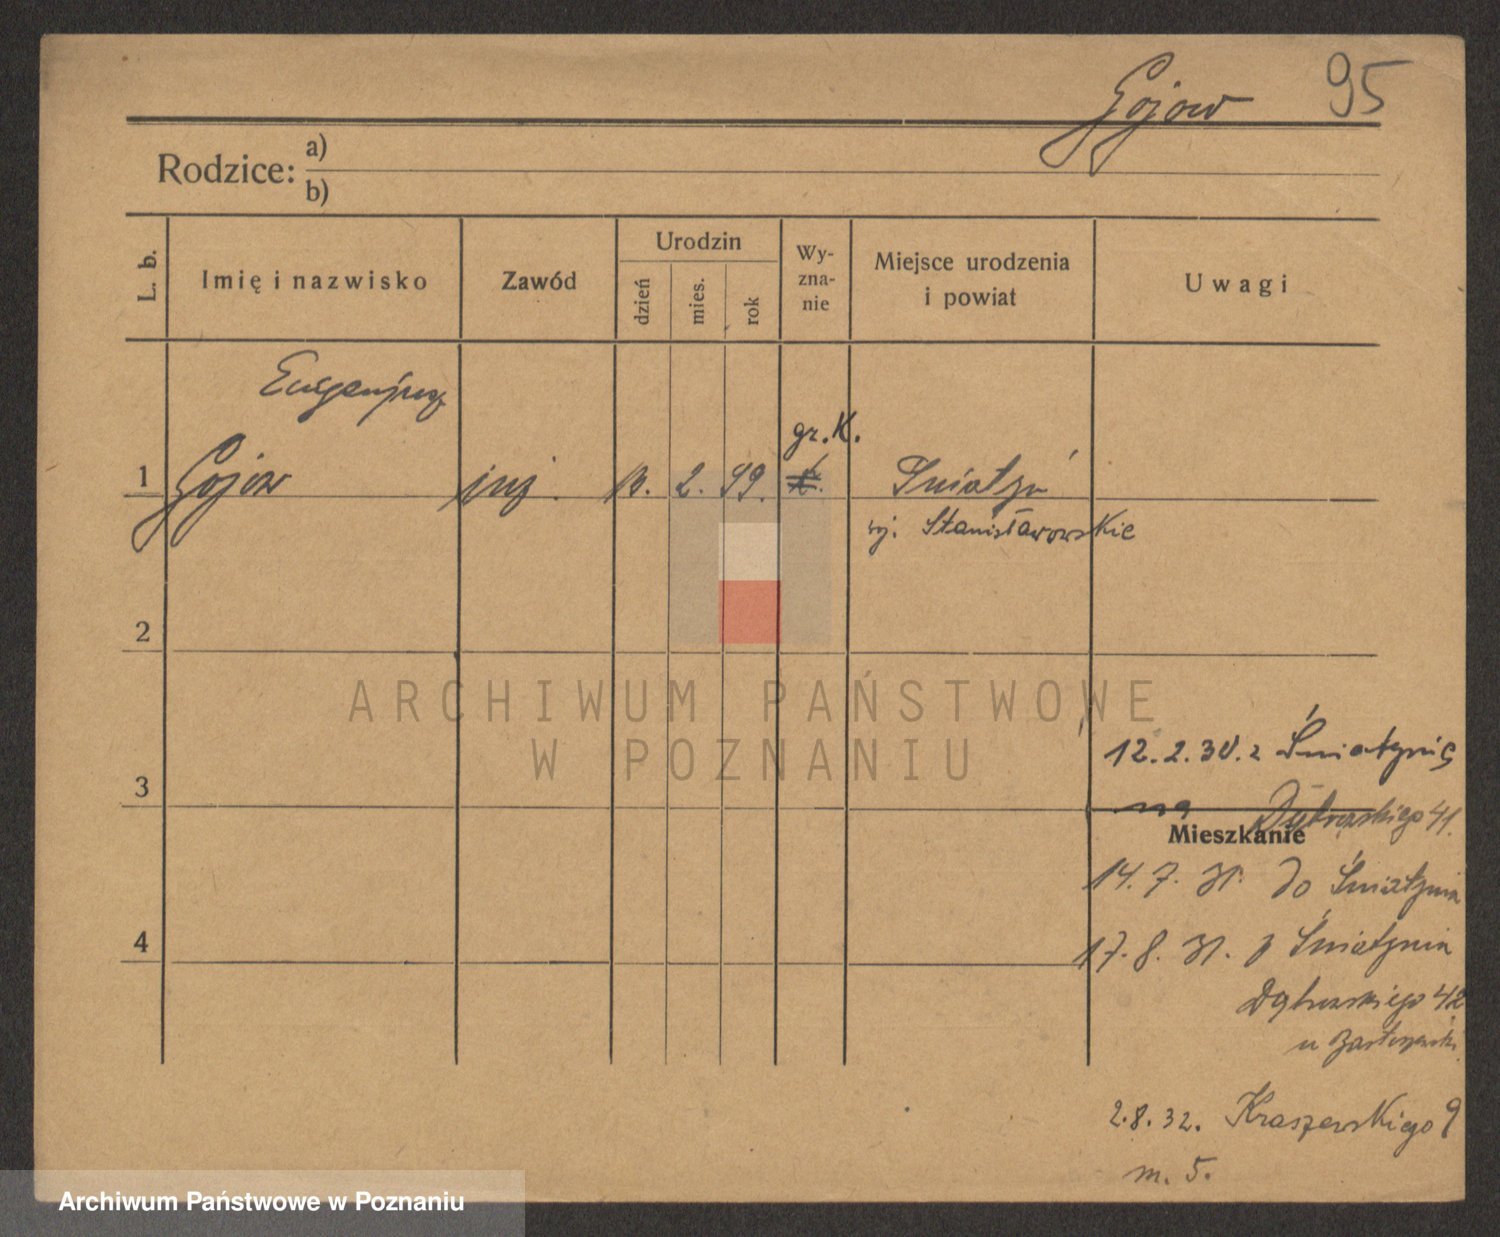 Gojow 95
Rodzice: a)
b)
L. b.
Imię i nazwisko
Zawód
Urodzin
dzień
mies.
rok
Wy-
zna-
nie
Miejsce urodzenia
i powiat
Uwagi
Eugenjusz
gr. K.
1 Gojow inż. 13. 2. 99. Śniatyń
wj. Stanisławowskie
2
ARCHIWUM PAŃSTWOWE
W POZNANIU
12.2.30. z Śniatynia
3
na Dąbrowskiego 41.
Mieszkanie
14. 7. 31. do Śniatynia
4
17. 8. 31. z Śniatynia
Dąbrowskiego 42
u
2.8.32. Kraszewskiego 9
m. 5.
Archiwum Państwowe w Poznaniu